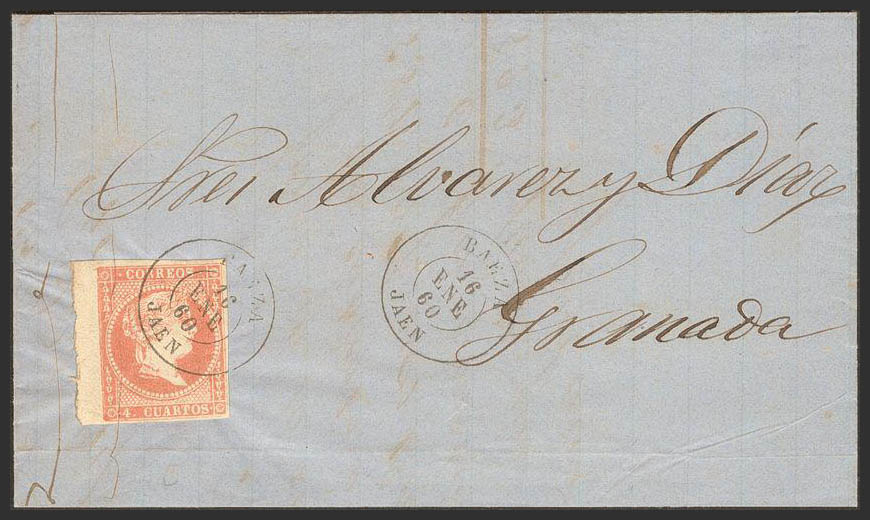 Sres Alvarez y Díaz
Granada
CORREOS
4. CUARTOS
BAEZA
16
ENE
60
JAEN
BAEZA
16
ENE
60
JAEN